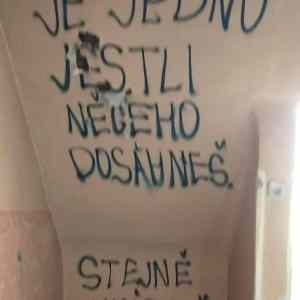 JE JEDNO
JESTLI
NĚČEHO
DOSÁHNEŠ.
STEJNĚ